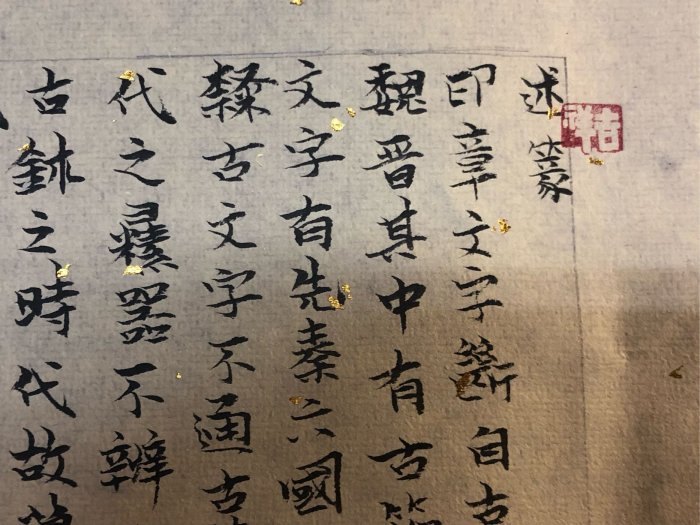 述篆
吉祥
印章文字斷自古
魏晉其中有古
文字有先秦六國
古文字不通古
代之彝器不辨
古鉥之時代故